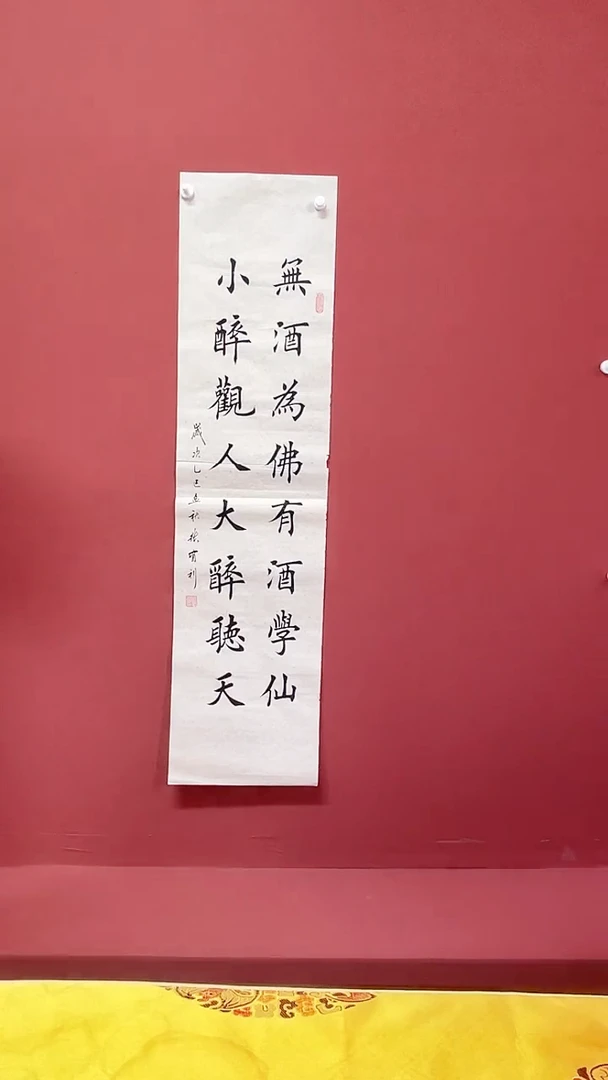 無酒為佛有酒學仙
小醉觀人大醉聽天
歲次乙巳 秋 有利